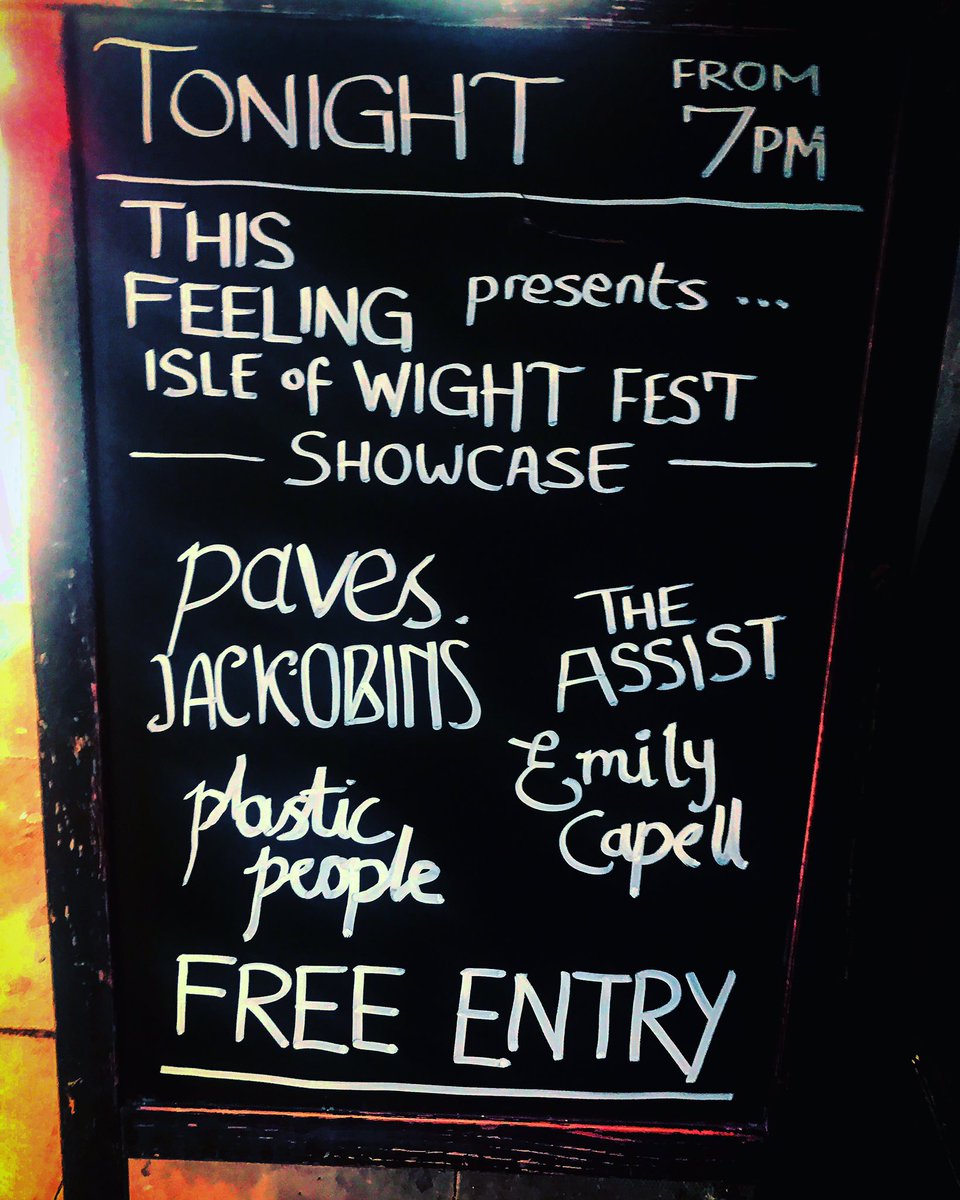 TONIGHT
FROM
7PM
THIS
FEELING
presents ...
ISLE of WIGHT FEST
SHOWCASE
paves.
JACKOBINS
THE
ASSIST
plastic
people
Emily
Capell
FREE ENTRY